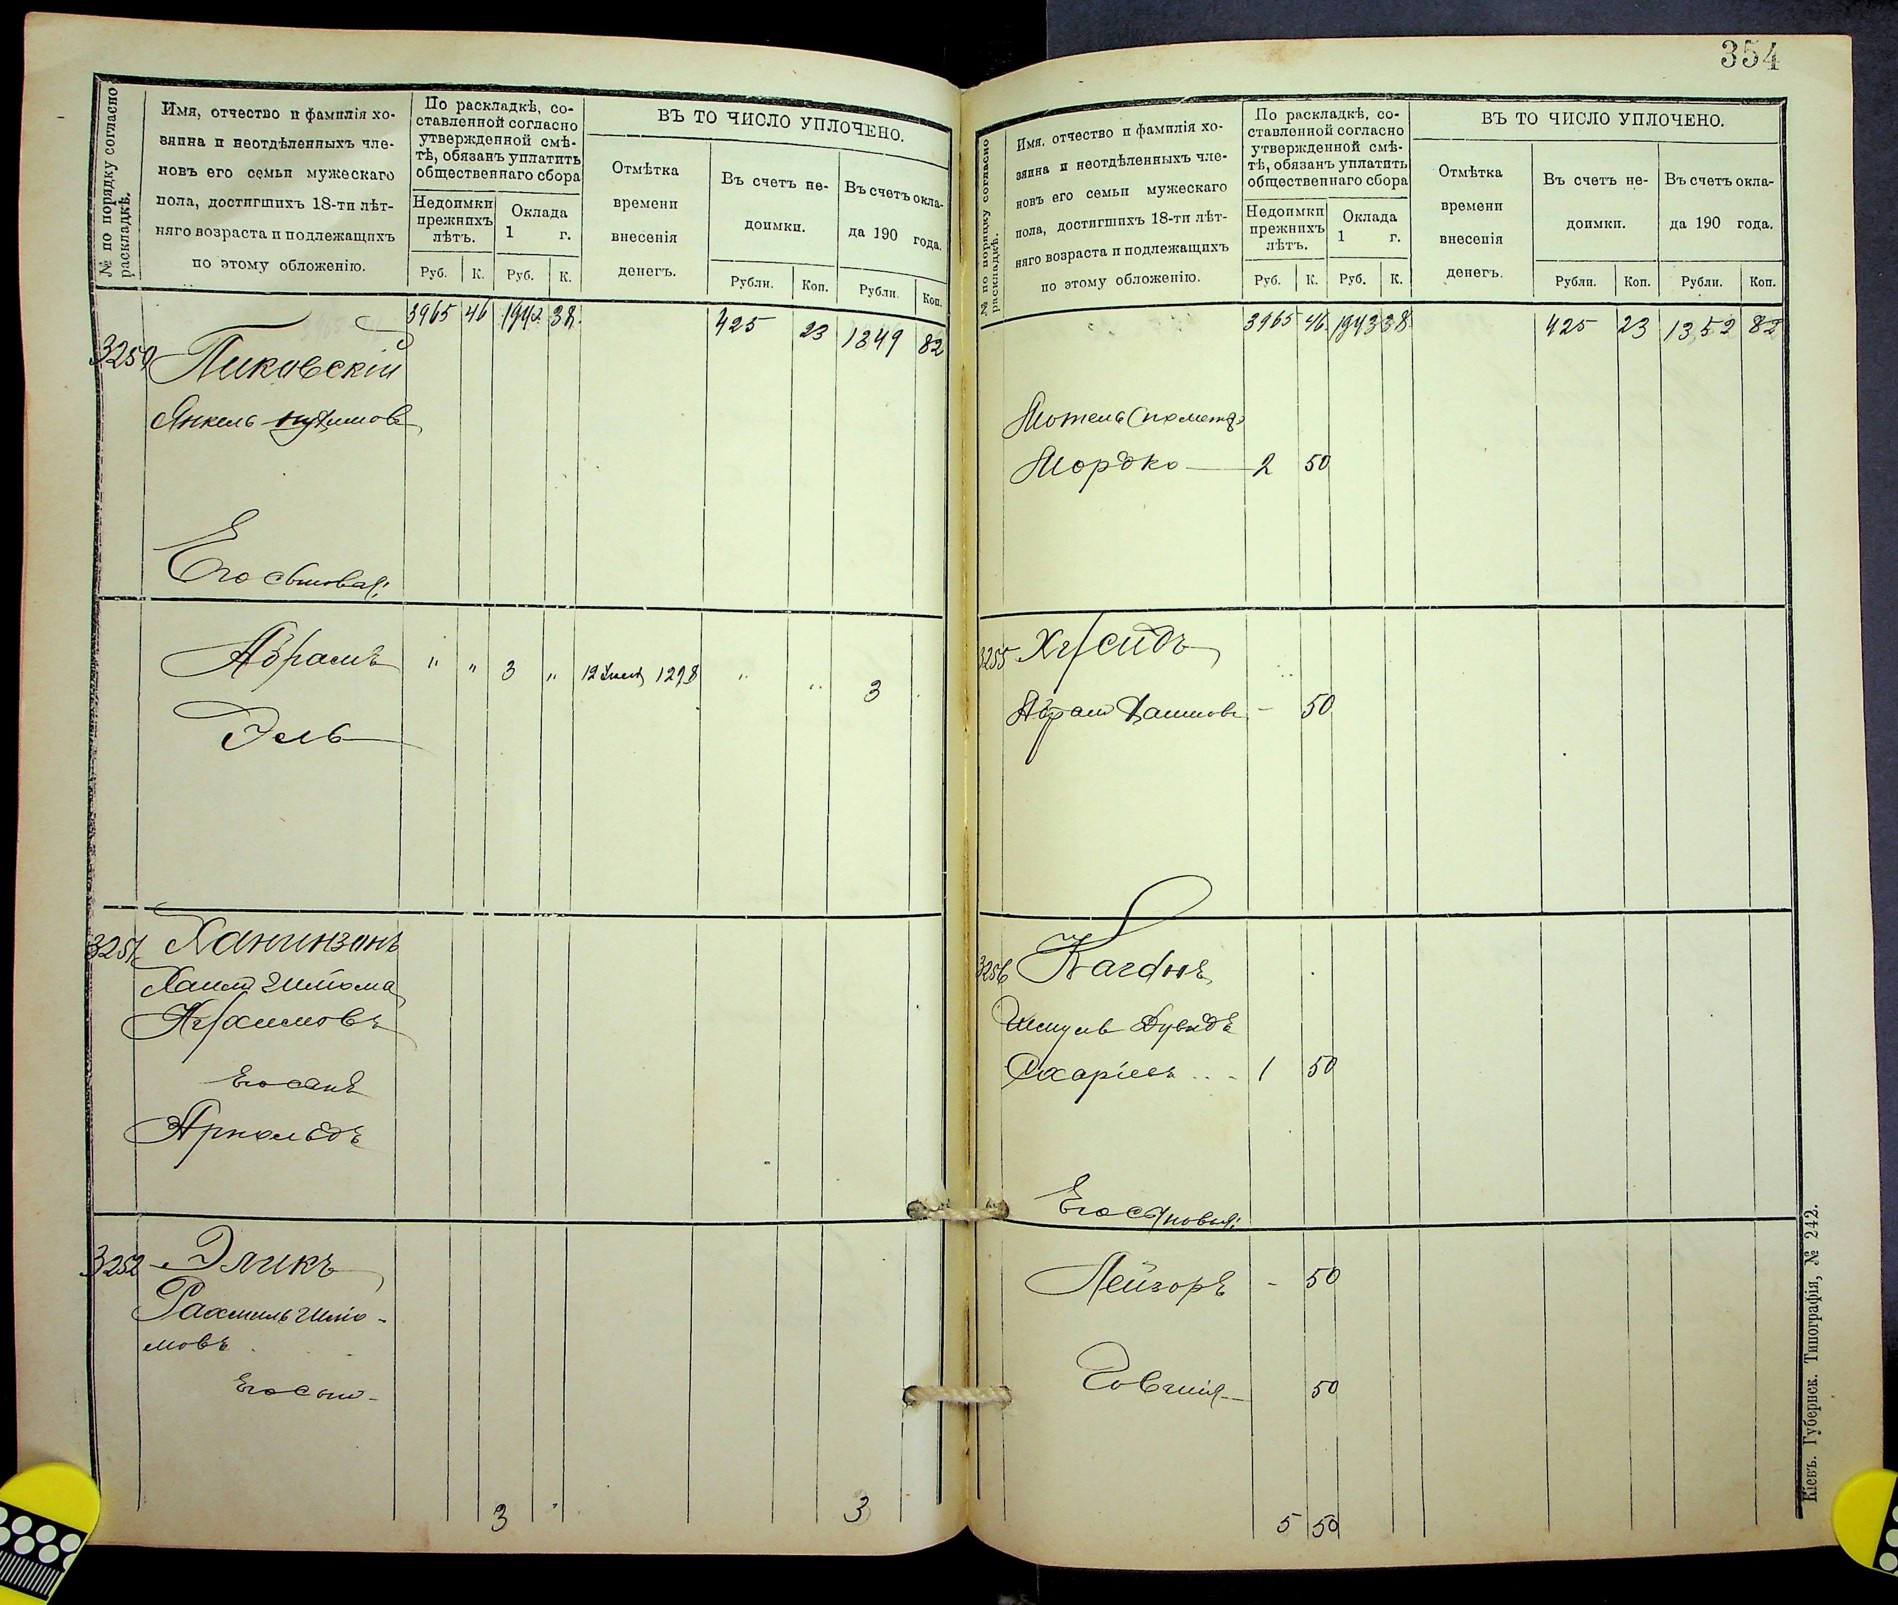 354
№ по порядку согласно раскладкѣ.
Имя, отчество и фамилія хо-
зяина и неотдѣленныхъ чле-
новъ его семьи мужескаго
пола, достигшихъ 18-ти лѣт-
няго возраста и подлежащихъ
по этому обложенію.
По раскладкѣ, со-
ставленной согласно
утвержденной смѣ-
тѣ, обязанъ уплатить
общественнаго сбора
Недоимки прежнихъ лѣтъ.
Оклада 1 г.
Руб. К. Руб. К.
ВЪ ТО ЧИСЛО УПЛОЧЕНО.
Отмѣтка времени внесенія денегъ.
Въ счетъ не-доимки.
Въ счетъ окла-да 190 года.
Рубли. Коп. Рубли. Коп.
3965 46 38 425 23 1349 82
3250 Пиковскій
Янкель
Его сыновья:
Абрамъ " " 3 " 12 1298 " " 3
Эль
3251 Ханинзонъ
Хаим Шлиома
Его сынъ
Арнольдъ
3252 Эликъ
Рахмиль Шлио-
мовъ
Его сын
3 3
№ по порядку согласно раскладкѣ.
Имя, отчество и фамилія хо-
зяина и неотдѣленныхъ чле-
новъ его семьи мужескаго
пола, достигшихъ 18-ти лѣт-
няго возраста и подлежащихъ
по этому обложенію.
По раскладкѣ, со-
ставленной согласно
утвержденной смѣ-
тѣ, обязанъ уплатить
общественнаго сбора
Недоимки прежнихъ лѣтъ.
Оклада 1 г.
Руб. К. Руб. К.
ВЪ ТО ЧИСЛО УПЛОЧЕНО.
Отмѣтка времени внесенія денегъ.
Въ счетъ не-доимки.
Въ счетъ окла-да 190 года.
Рубли. Коп. Рубли. Коп.
3965 46 1943 38 425 23 1352 82
Мотель
Мордко 2 50
3255 Хусидъ
Абрам Хаимовъ - 50
3256
Шмуль Дувидъ
1 50
Его сыновья:
Лейзоръ - 50
50
5 50
Кіевъ. Губернск. Типографія, № 242.